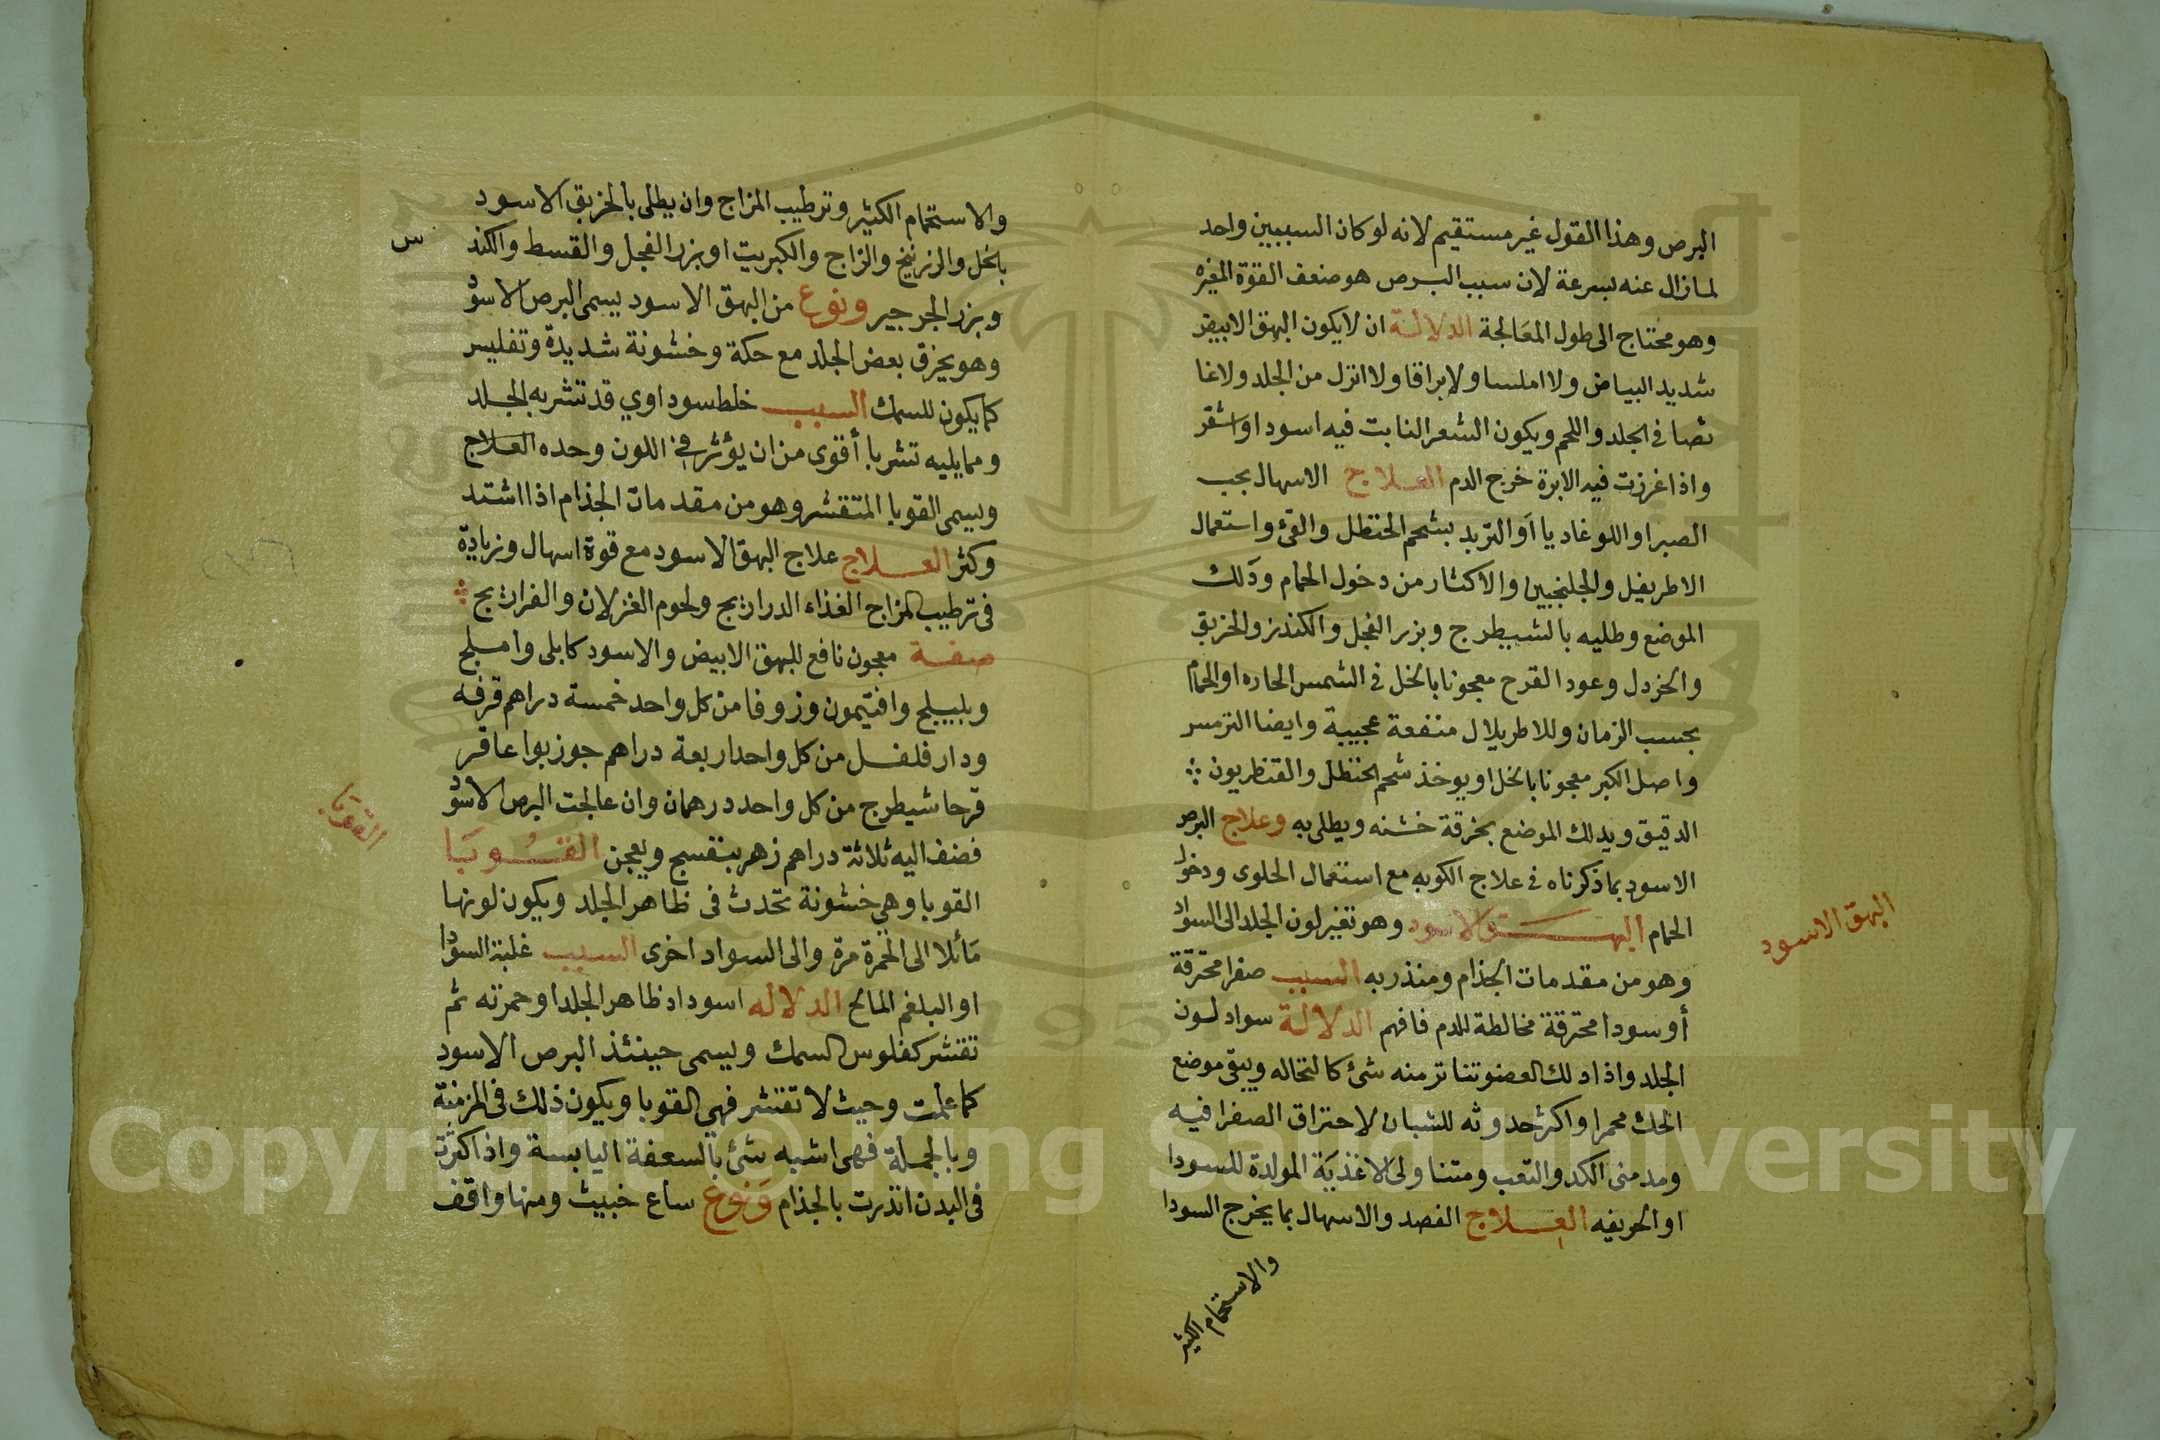 البرص وهذا القول غير مستقيم لانه لو كان السببين واحد
لمازال عنه بسرعة لان سبب البرص هو ضعف القوة المغيره
وهو محتاج الى طول المعالجة الدلالة ان لا يكون البهق الابيض
شديد البياض ولا املسا ولا براقا ولا انزل من الجلد ولا غا
ئصا في الجلد واللحم ويكون الشعر النابت فيه اسود او اشقر
واذا غرزت فيه الابرة خرج الدم العلاج الاسهال بحب
الصبر او اللوغاديا او التربد بشحم الحنظل والقئ واستعمال
الاطريفل والجلنجبين والاكثار من دخول الحمام ودلك
الموضع وطليه بالشيطرج وبزر الفجل والكندر والخربق
والخردل وعود القرح معجونا بالخل في الشمس الحاره او الحمام
بحسب الزمان وللاطريلال منفعة عجيبة وايضا الترمس
واصل الكبر معجونا بالخل او يوخذ شحم الحنظل والقنطريون
الدقيق ويدلك الموضع بخرقة خشنه ويطلى به وعلاج البرص
الاسود بما ذكرناه في علاج الكوبه مع استعمال الحلوى ودخول
الحمام البهق الاسود وهو تغير لون الجلد الى السواد
البهق الاسود
وهو من مقدمات الجذام ومنذر به السبب صفرا محترقة
أو سودا محترقة مخالطة للدم فافهم الدلالة سواد لون
الجلد واذا دلك العضو تناثر منه شئ كالنخاله ويبقى موضع
الحك محمرا واكثر حدوثه للشبان لاحتراق الصفرا فيه
ومدمنى الكد والتعب ومتناولى الاغذية المولدة للسودا
او الحريفه العلاج الفصد والاسهال بما يخرج السودا
والاستحمام الكثير
والاستحمام الكثير وترطيب المزاج وان يطلى بالخربق الاسود
بالخل والزرنيخ والزاج والكبريت او بزر الفجل والقسط والكند
س
وبزر الجرجير ونوع من البهق الاسود يسمى البرص الاسود
وهو يخرق بعض الجلد مع حكة وخشونة شديدة وتفليس
كما يكون للسمك السبب خلط سوداوي قد تشربه الجلد
ومما يليه تشربا أقوى من ان يؤثر في اللون وحده العلاج
ويسمى القوبا المتقشر وهو من مقدمات الجذام اذا اشتد
وكثر العلاج علاج البهق الاسود مع قوة اسهال وزيادة
فى ترطيب المزاج الغذاء الدراريج ولحوم الغزلان والفراريج
صفة معجون نافع للبهق الابيض والاسود كابلى وامبلج
وبليلج وافتيمون وزوفا من كل واحد خمسة دراهم قرفه
ودار فلفل من كل واحد اربعة دراهم جوزبوا عاقر
قرحا شيطرج من كل واحد درهمان وان عالجت البرص الاسود
فضف اليه ثلاثة دراهم زهر بنفسج ويعجن القوبا
القوبا
القوبا وهي خشونة تحدث فى ظاهر الجلد ويكون لونها
مائلا الى الحمرة مرة والى السواد اخرى السبب غلبة السودا
او البلغم المالح الدلاله اسوداد ظاهر الجلد او حمرته ثم
تقشر كفلوس السمك ويسمى حينئذ البرص الاسود
كما علمت وحيث لا تقشر فهي القوبا ويكون ذلك فى المزمنة
وبالجملة فهى اشبه شئ بالسعفة اليابسة واذا كثرت
فى البدن انذرت بالجذام ونوع ساع خبيث ومنها واقف
Copyright © King Saud University